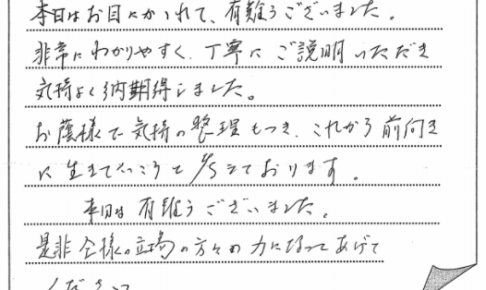 本日はお目にかかれて、有難うございました。
非常にわかりやすく、丁寧にご説明いただき
気持よく納得しました。
お蔭様で気持の整理もつき、これから前向き
に生きていこうと おります。
本日は有難うございました。
是非 様の立場の方々の力になってあげて
ください